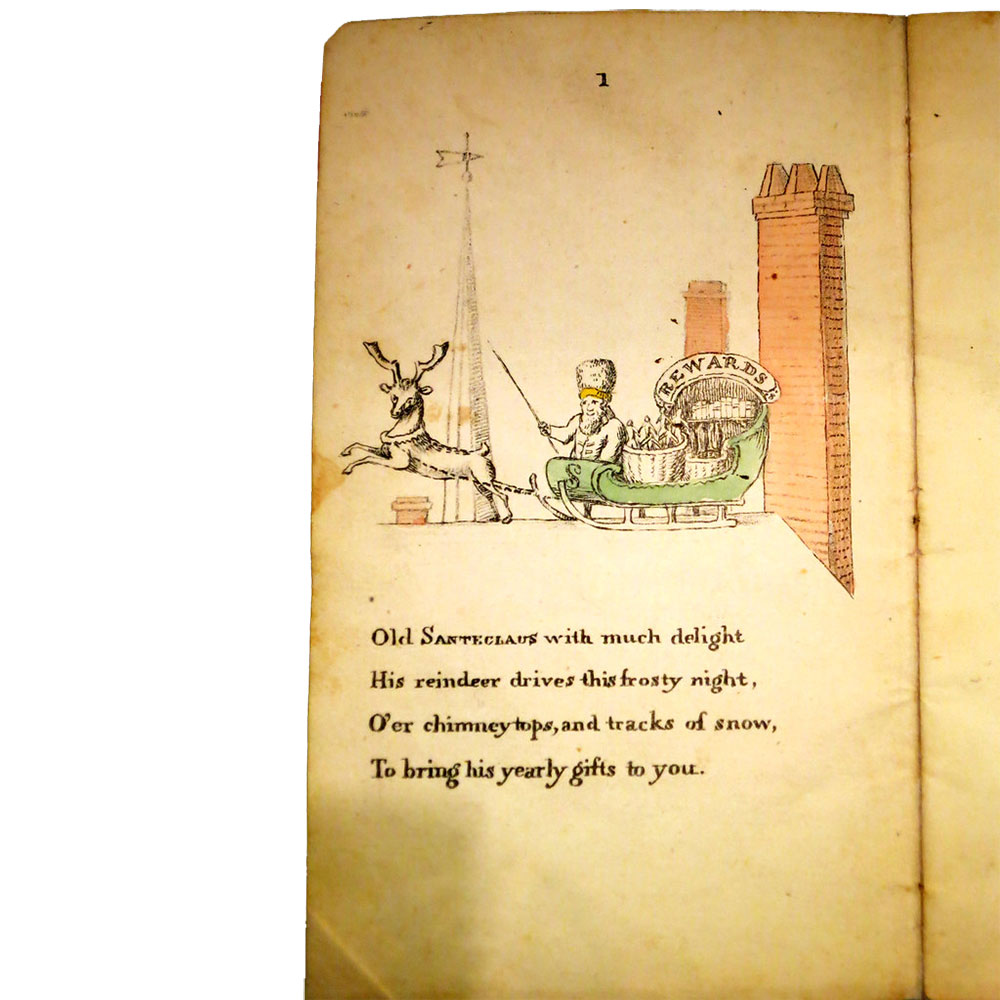 1
REWARDS
S
Old SANTECLAUS with much delight
His reindeer drives this frosty night,
O'er chimney tops, and tracks of snow,
To bring his yearly gifts to you.